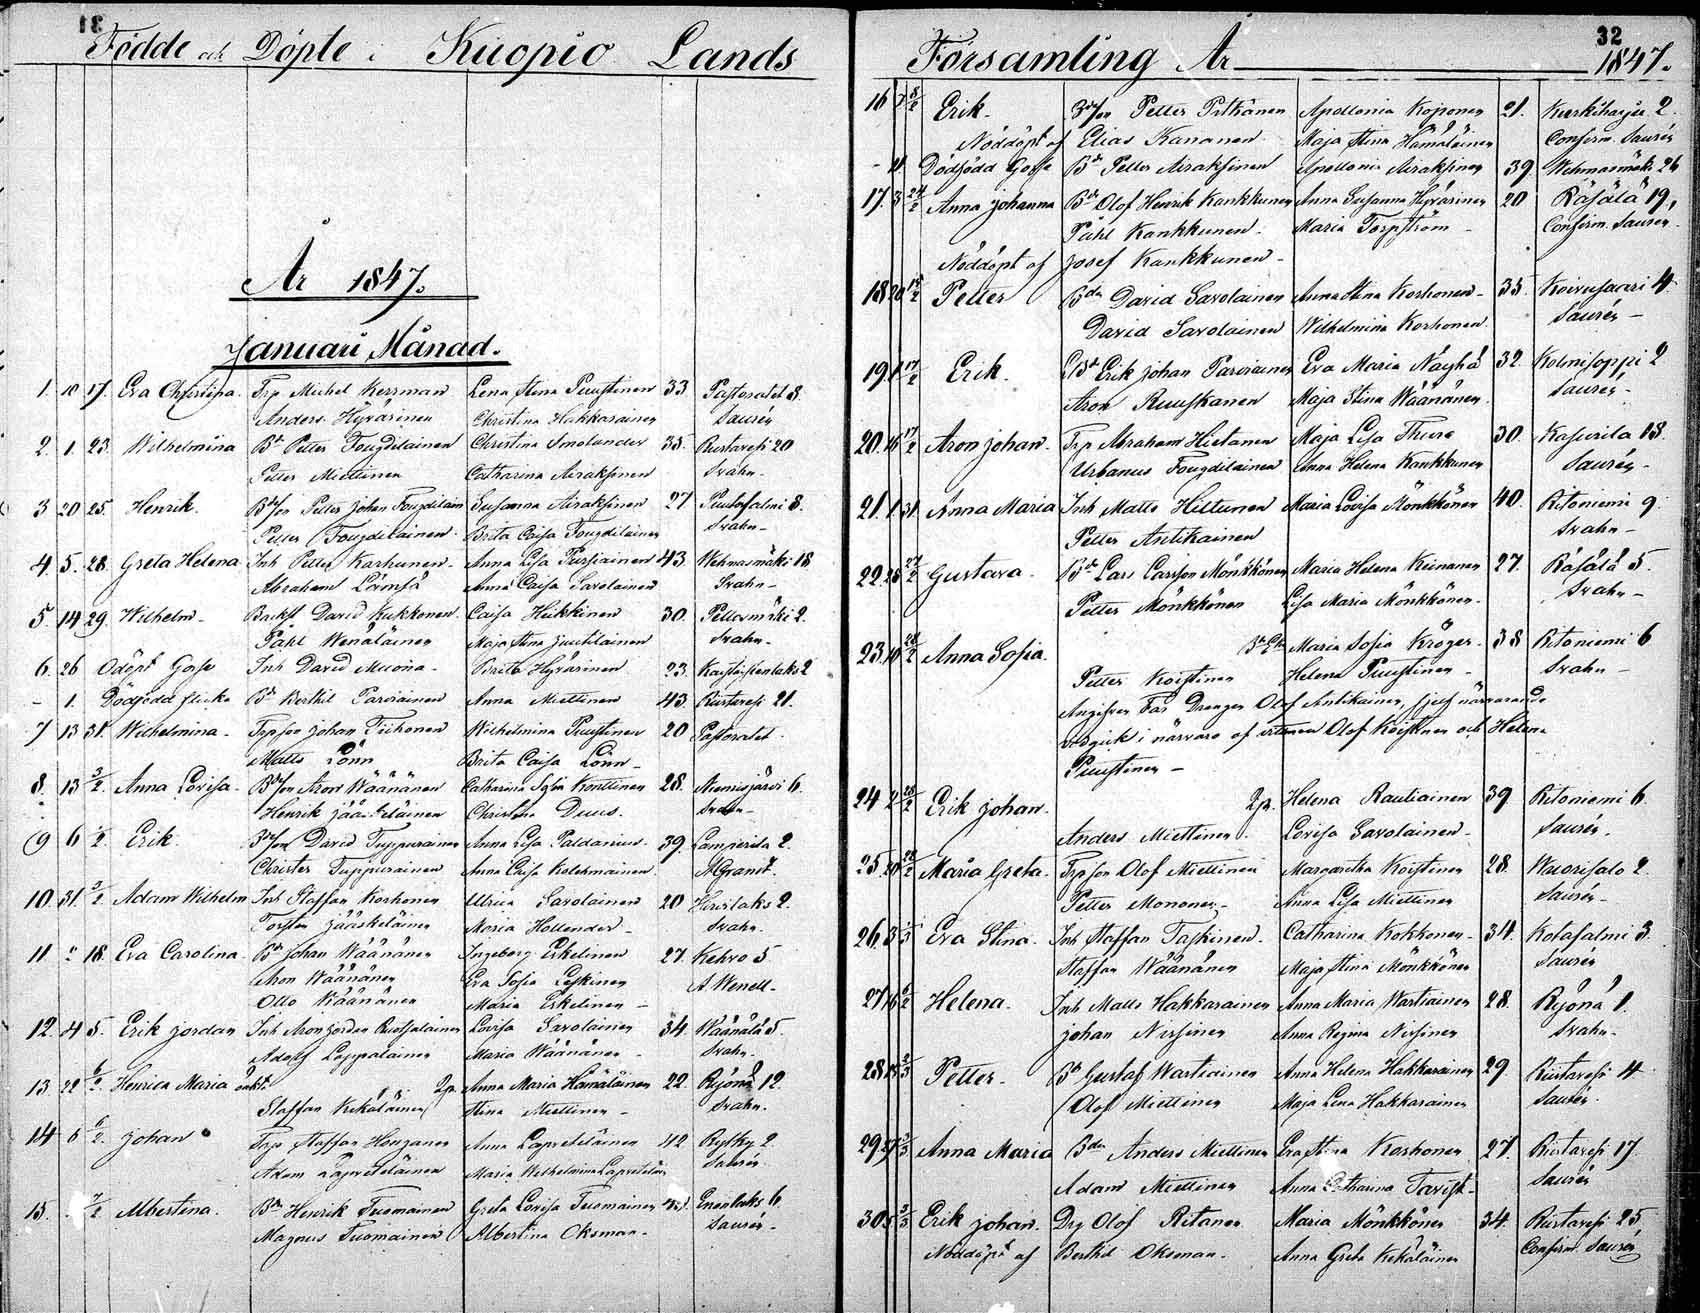 31
Födde och Döpte i Kuopio Lands
År 1847.
Januari Månad.
1. 10 17. Eva Christina. Trp Michel Kerrman Lena Stina Puustinen 33 Pastoratet 8.
Anders Hyvärinen Christina Hakkarainen Saurén
2. 1. 23. Wilhelmina Bd Petter Fougdilainen Christina Smolander 35. Rustavesi 20
Petter Miettinen Catharina Airaksinen Svahn
3 20 25. Henrik. Petter Johan Fougdilain Susanna Airaksinen 27 8.
Petter Fougdilainen Brita Caisa Fougdilainen Svahn
4. 5. 28. Greta Helena Inh Petter Korhunen Anna Lisa Pursiainen 43. Wehmasmäki 18
Abraham Lämsä Anna Caisa Savolainen Svahn
5. 14 29. Wilhelm David Kukkonen Caisa Heikkinen 30. Pellosmäki 2.
Påhl Wenäläinen Maja Stina Juutilainen Svahn
6. 26 Odöpt Gosse Inh David Muona Brita Hyvärinen 23. 2
- 1. Dödfödd flicka Bd Berthil Parviainen Anna Miettinen 43. Rustavesi 21.
7 13 31. Wilhelmina. Trpson Johan Tiihonen Wilhelmina Puustinen 20 Pastoratet
Matts Lönn Brita Caisa Lönn
8. 13 3/2 Anna Lovisa. Bdson Aron Wäänänen Catharina Sofia Konttinen 28. Niemisjärvi 6.
Henrik Jääskeläinen Christina Duus. Svahn
9 6 Erik. Bdson David Tuppurainen Anna Lisa Paldanius 39. Lamperila 2.
Christer Tuppurainen Anna Caisa Kolehmainen A Granit.
10. 31. Adam Wilhelm Inh Staffan Korhonen Ulrica Savolainen 20 Hirvilaks 2.
Torsten Jääskeläinen Maria Hollender Svahn.
11 18. Eva Carolina. Bd Johan Wäänänen Ingeborg Eskelinen 27. Kehvo 5
Aron Wäänänen Eva Sofia Leskinen A Wenell
Otto Wäänänen Maria Eskelinen
12. 4 5. Erik Jordan Inh Aron Jordan Ruotsalainen Lovisa Savolainen 34 Wäänälä 5.
Adolf Lappalainen Maria Wäänänen Svahn.
13 22 6/2 Henrica Maria oäkt. Anna Maria Hämäläinen 22. Ryönä 12.
Staffan Kekäläinen Stina Miettinen Svahn.
14 6 6/2. Johan Trp Staffan Honganen Anna Lapveteläinen 42 Rytky 2
Adam Lapveteläinen Maria Wilhelmina Lapvetelän Saurén
15. 7/2 Albertina. Bdn Henrik Tuomainen Greta Lovisa Tuomainen Enonlaks 6
Magnus Tuomainen Albertina Oksman. Saurén
32
Församling År 1847.
16 7 8/2 Erik. Bdson Petter Pitkänen Apollonia Koponen 21. Kurkiharju 2.
Nöddöpt af Elias Kananen Maja Stina Hämäläinen Confirm. Saurén
- 11 Dödfödd Gosse Bd Petter Airaksinen Apollonia Airaksinen 39. Wehmasmäki 26
17. 3 Anna Johanna Bd Olof Henrik Kankkunen Anna Susanna Hyvärinen 20 Räsälä 19,
Påhl Kankkunen Maria Torpström Confirm. Saurén
Nöddöpt af Josef Kankkunen
18 20 Petter Bdn David Savolainen Anna Stina Korhonen 35. Koivusaari 4.
David Savolainen Wilhelmina Korhonen Saurén
19. 1 17/2 Erik. Erik Johan Parviainen Eva Maria Näyhä 32. Kolmisoppi 2
Aron Ruuskanen Maja Stina Wäänänen Saurén
20. 16 17/2 Aron Johan. Trp Abraham Hietanen Maja Lisa Thure 30. Kasurila 18.
Urbanus Fougdilainen Anna Helena Kankkunen Saurén
21. 1 31. Anna Maria Inh Matts Hiltunen Maria Lovisa Mönkkönen 40. Ritoniemi 9.
Petter Antikainen Svahn
22. 25 27/2 Gustava. Bd Lars Larsson Mönkkönen Maria Helena Keinanen 27. Räsälä 5.
Petter Mönkkönen Lisa Maria Mönkkönen Svahn
23. 10 28/2 Anna Sofia. Maria Sofia Kröger 38 Ritoniemi 6
Petter Koistinen Helena Puustinen Svahn
Angifven Far Drengen Olof Antikainen, sjelf närvarande
vidgick i närvaro af vittnen Olof Koistinen och Helena
Puustinen
24 2 28/2 Erik Johan. Helena Rautiainen 39 Ritoniemi 6.
Anders Miettinen Lovisa Savolainen Saurén.
25. 20 28/2 Maria Greta. Trpson Olof Miettinen Margaretha Koistinen 28. Wuorisalo 2.
Petter Mononen Anna Lisa Miettinen Saurén
26. 3 Eva Stina. Inh Staffan Taskinen Catharina Kokkonen 34. Kotasalmi 3.
Staffan Wäänänen Maja Stina Mönkkönen Saurén
27 16 Helena. Inh Matts Hakkarainen Anna Maria Wartiainen 28. Ryönä 1.
Johan Nissinen Anna Regina Nissinen Svahn
28. Petter. Bd Gustaf Wartiainen Anna Helena Hakkarainen 29. Rustavesi 4.
Olof Miettinen Maja Lena Hakkarainen Saurén.
29. 27 Anna Maria Bdn Anders Miettinen Eva Stina Korhonen 27. Rustavesi 17.
Adam Miettinen Anna Catharina Tavast Saurén
30. Erik Johan. Drg Olof Ritanen Maria Mönkkönen 34. Rustavesi 25
Nöddöpt af Berthil Oksman. Anna Greta Kekäläinen Confirm. Saurén